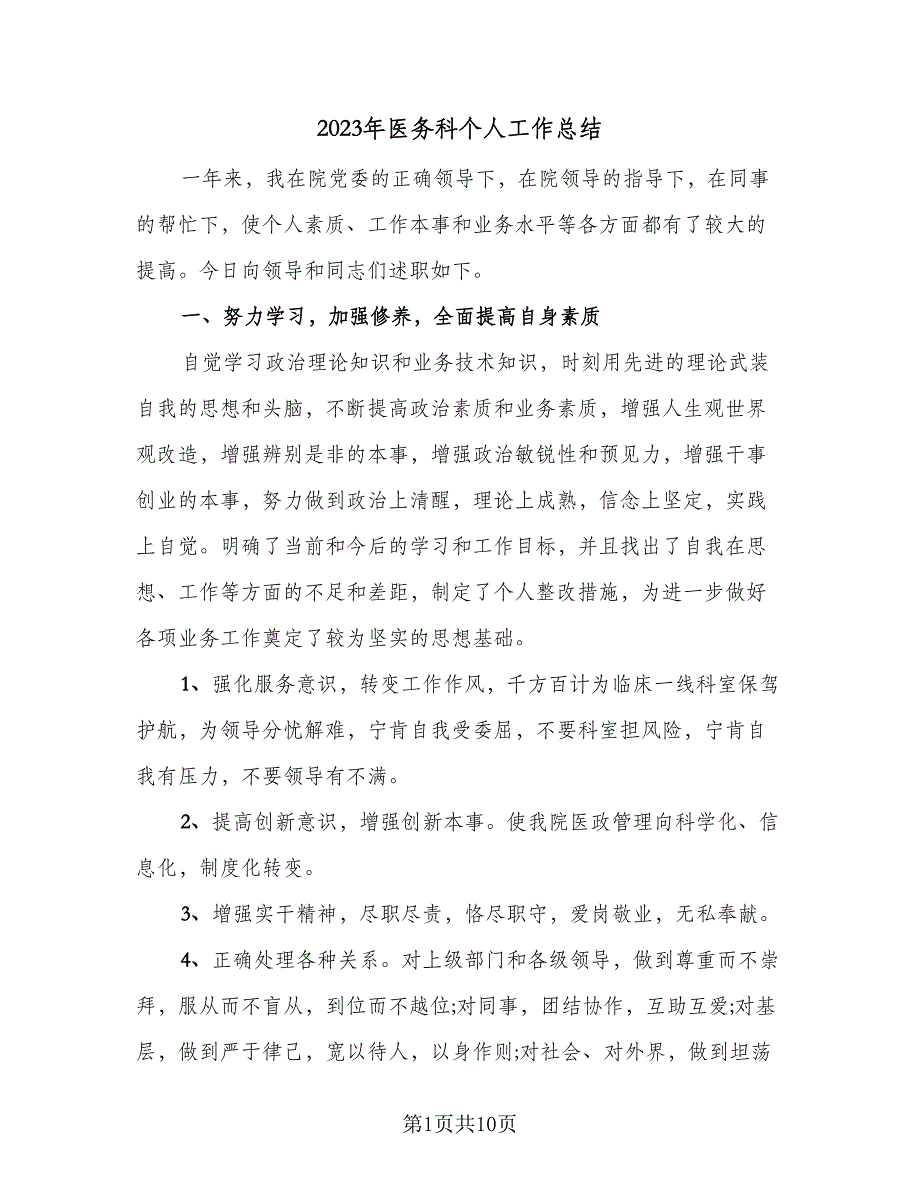 2023年医务科个人工作总结
一年来，我在院党委的正确领导下，在院领导的指导下，在同事
的帮忙下，使个人素质、工作本事和业务水平等各方面都有了较大的
提高。今日向领导和同志们述职如下。
一、努力学习，加强修养，全面提高自身素质
自觉学习政治理论知识和业务技术知识，时刻用先进的理论武装
自我的思想和头脑，不断提高政治素质和业务素质，增强人生观世界
观改造，增强辨别是非的本事，增强政治敏锐性和预见力，增强干事
创业的本事，努力做到政治上清醒，理论上成熟，信念上坚定，实践
上自觉。明确了当前和今后的学习和工作目标，并且找出了自我在思
想、工作等方面的不足和差距，制定了个人整改措施，为进一步做好
各项业务工作奠定了较为坚实的思想基础。
1、强化服务意识，转变工作作风，千方百计为临床一线科室保驾
护航，为领导分忧解难，宁肯自我受委屈，不要科室担风险，宁肯自
我有压力，不要领导有不满。
2、提高创新意识，增强创新本事。使我院医政管理向科学化、信
息化，制度化转变。
3、增强实干精神，尽职尽责，恪尽职守，爱岗敬业，无私奉献。
4、正确处理各种关系。对上级部门和各级领导，做到尊重而不崇
拜，服从而不盲从，到位而不越位;对同事，团结协作，互助互爱;对基
层，做到严于律己，宽以待人，以身作则;对社会、对外界，做到坦荡
第1页共10页